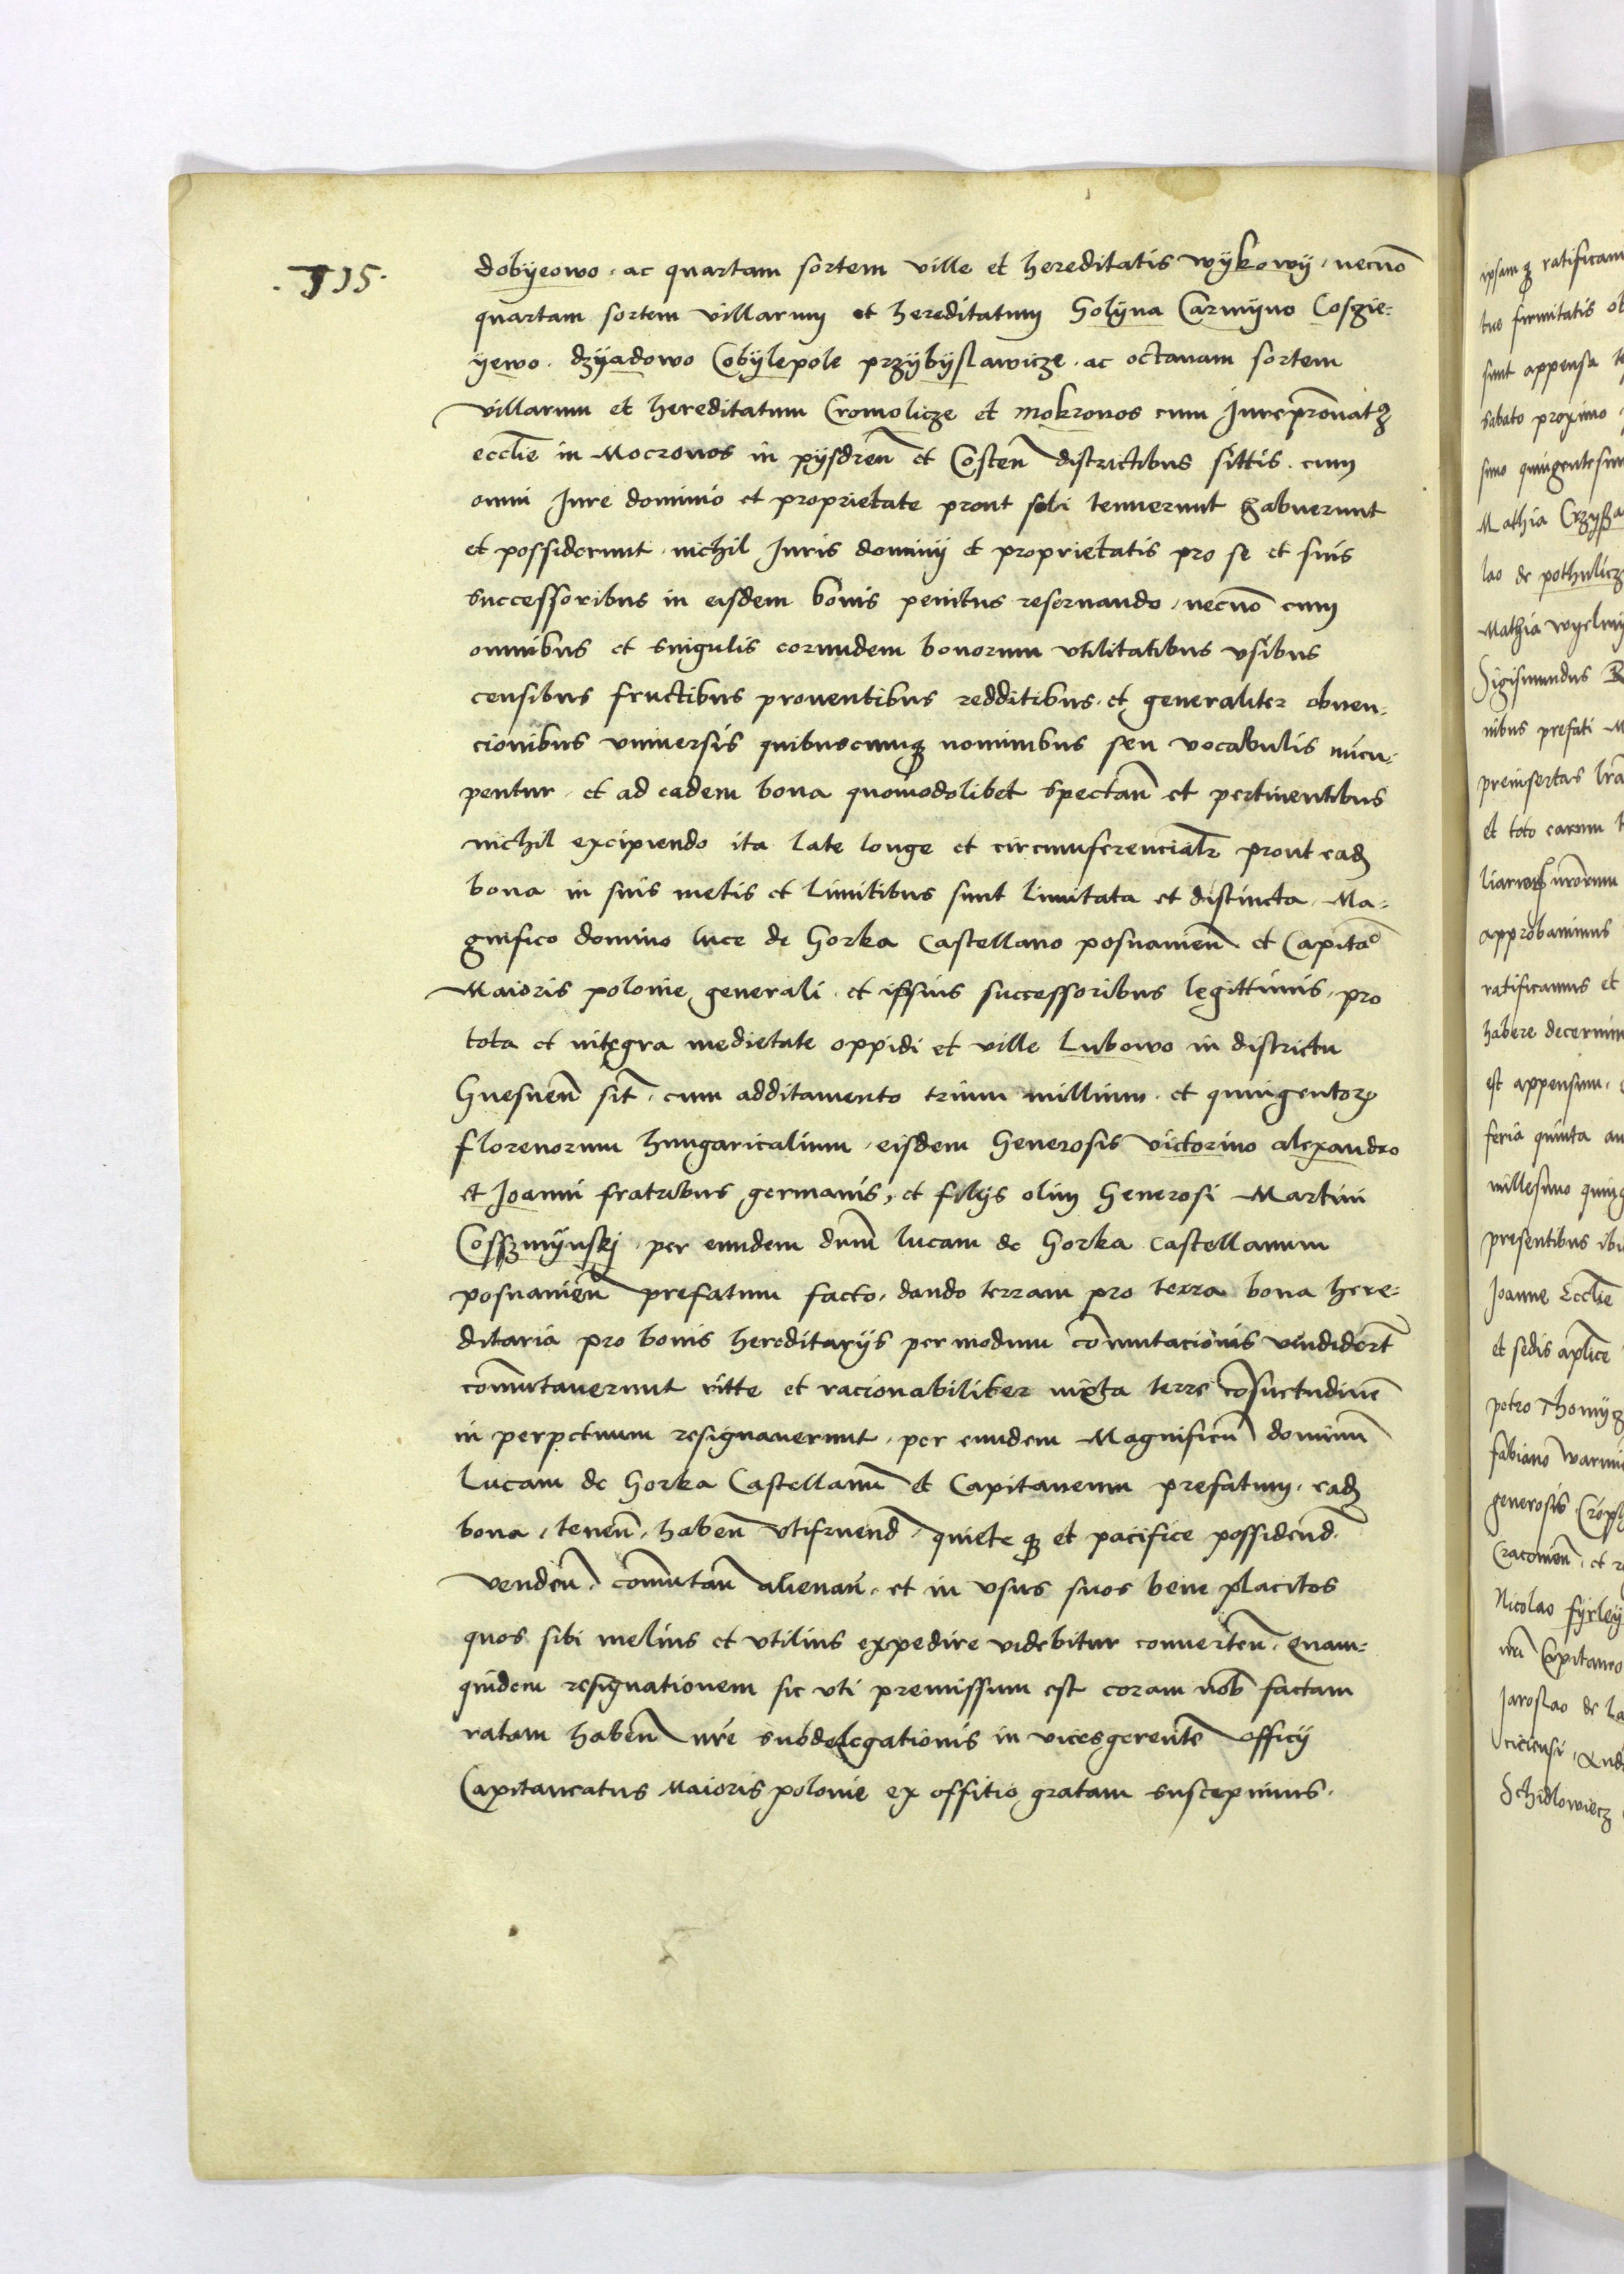 .115.
dobÿeowo. ac quartam sortem ville et hereditatis wÿkowÿ. necnō
quartam sortem villarum et hereditatum Golÿna Carmÿno Cosgie-
ÿewo. dzÿadowo Cobÿlepole przÿbÿslawicze. ac octauam sortem
villarum et hereditatum Cromolicze et Mokronos cum Jurepronatꝫ
ecclīe in Mocronos in pÿsdreñ et Costeñ districtibus sittis. cum
omni Jure dominio et proprietate prout soli tenuerunt habuerunt
et possiderunt. nichil Juris dominÿ et proprietatis pro se et suis
successoribus in eisdem bonis penitus reseruando. necnō cum
omnibus et singulis eorundem bonorum vtilitatibus vsibus
censibus fructibus prouentibus redditibus. et generaliter obuen-
cionibus vniuersis quibuscumqꝫ nominibus seu vocabulis nūcu-
pentur. et ad eadem bona quomodolibet spectañ et pertinentibus
nichil excipiendo ita late longe et circumferencialr̄ prout eadꝫ
bona in suis metis et limitibus sunt limitata et distincta. Ma-
gnifico domino luce de Gorka Castellano posnanieñ et Capitāo
Maioris polonie generali. et ipsius successoribus legittimis. pro
tota et integra medietate oppidi et ville Lubowo in districtu
Gnesneñ sit̄. cum additamento trium millium. et quingentorꝫ
florenorum hungaricalium. eisdem Generosis victorino alexandro
et Joanni fratribus germanis, et filÿs olim Generosi Martini
Cosszmÿnskj. per eundem dn̄m lucam de Gorka Castellanum
posnanieñ prefatum facto. dando terram pro terra bona here-
ditaria pro bonis hereditarÿs per modum com̄utacionis vendiderūt
com̄utauerunt ritte et racionabiliter iuxta terre cōsuetudinē
in perpetuum resignauerunt. per eundem Magnificū dominū
Lucam de Gorka Castellanū et Capitaneum prefatum. eadꝫ
bona. teneñ. habeñ vtifruend̄. quiete qꝫ et pacifice possidend̄.
vendeñ. com̄utañ alienañ. et in vsus suos bene placitos
quos sibi melius et vtilius expedire videbitur conuerteñ. Quam-
quidem resignationem sic vti premissum est coram nob̄ factam
ratam habeñ nr̄e subdelegationis in vicesgerente officÿ
Capitaneatus Maioris polonie ex offitio gratam suscepimus.
ipsamqꝫ ratificam
tuo firmitatis
sunt appensa
sabato proximo
simo quingentesim
Mathia Crzÿsza
lao de pothulicz
Mathia wÿelmÿ
Sigismundus
nibus prefati
preinsertas lr̄a
et toto earum
approbauimus
ratificamus et
habere decernim
est appensum.
feria quinta
millesimo quing
presentibus ibi
Joanne Ecclīe
et sedis aplīce
petro Thomÿcz
fabiano warmi
generosis
Cracouieñ. et
Nicolao fÿrleÿ
Capitaneo
Jaroslao de
Schidlowiecz